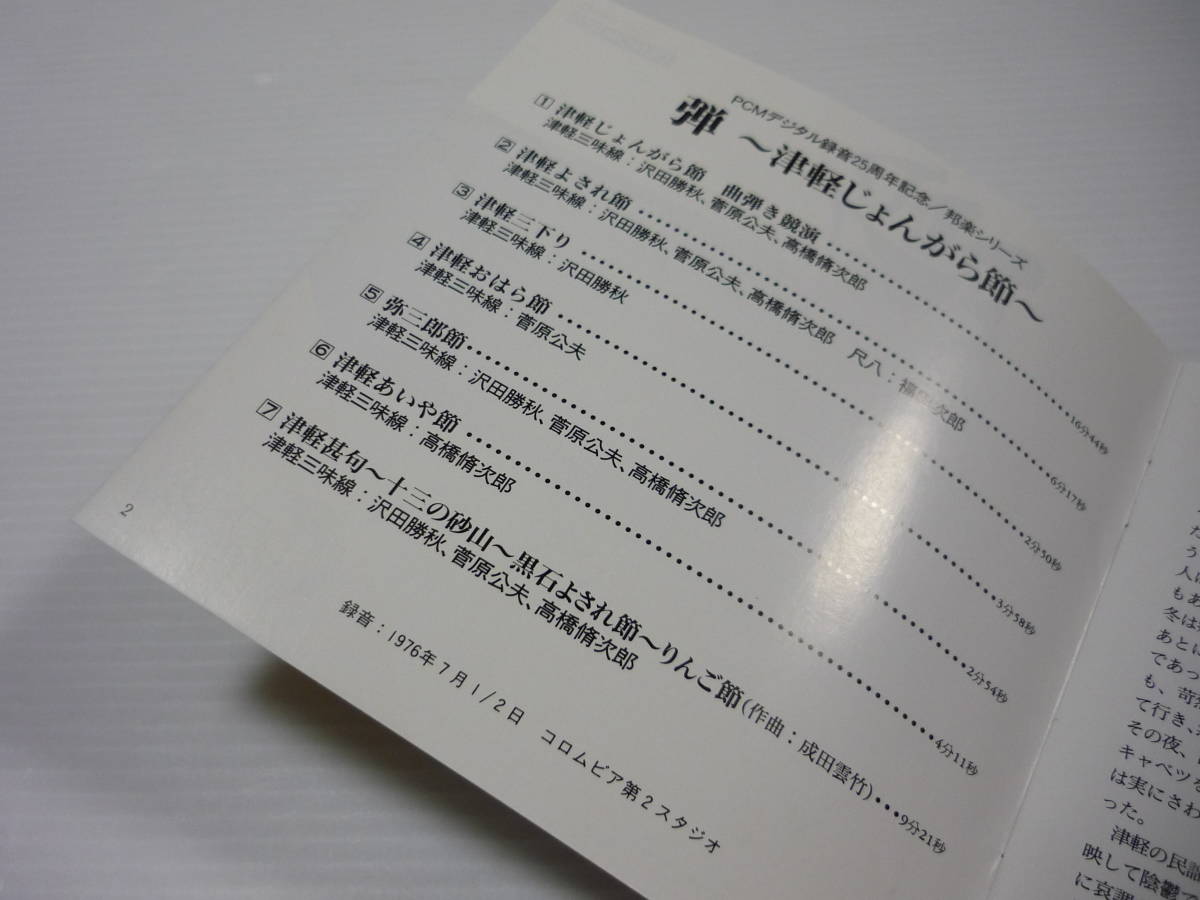 PCMデジタル録音25周年記念／邦楽シリーズ
弾 〜津軽じょんがら節〜
1 津軽じょんがら節 曲弾き競演 16分44秒
津軽三味線：沢田勝秋、菅原公夫、高橋脩次郎
2 津軽よされ節 6分17秒
津軽三味線：沢田勝秋、菅原公夫、高橋脩次郎 尺八：福田次郎
3 津軽三下り 2分50秒
津軽三味線：沢田勝秋
4 津軽おはら節 3分58秒
津軽三味線：菅原公夫
5 弥三郎節 2分54秒
津軽三味線：沢田勝秋、菅原公夫、高橋脩次郎
6 津軽あいや節 4分11秒
津軽三味線：高橋脩次郎
7 津軽甚句〜十三の砂山〜黒石よされ節〜りんご節(作曲：成田雲竹) 9分21秒
津軽三味線：沢田勝秋、菅原公夫、高橋脩次郎
録音：1976年7月1/2日 コロムビア第2スタジオ
2
た
う
人に
もあ
冬は
あとに
であっ
も、苛
て行き、
その夜、
キャベツを
は実にさわ
った。
津軽の民謡
映して陰鬱で
に哀調